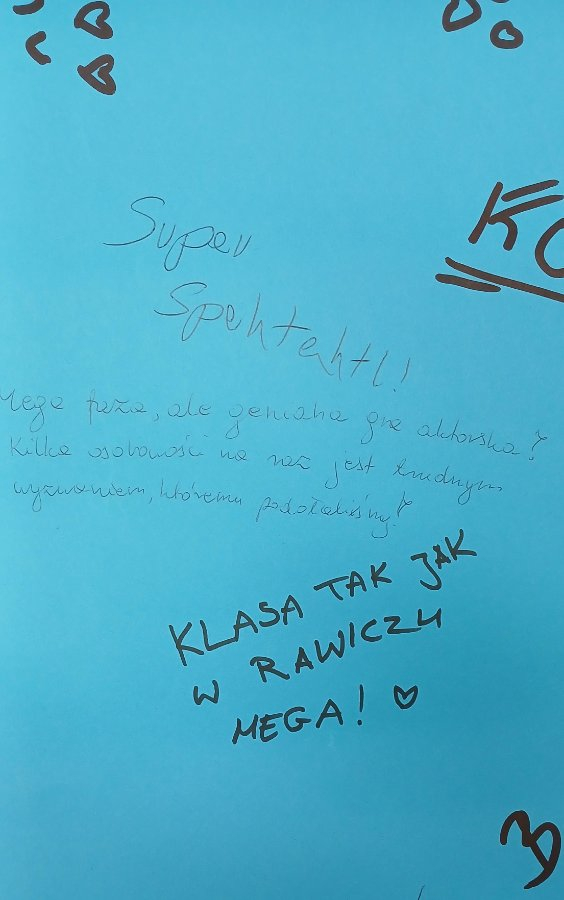 KO
Super
Spektakl!
Mega faza, ale genialna gra aktorska!
Kilka osobowości na raz jest trudnym
wyzwaniem, któremu podołaliśmy!
KLASA TAK JAK
W RAWICZU
MEGA! ♡